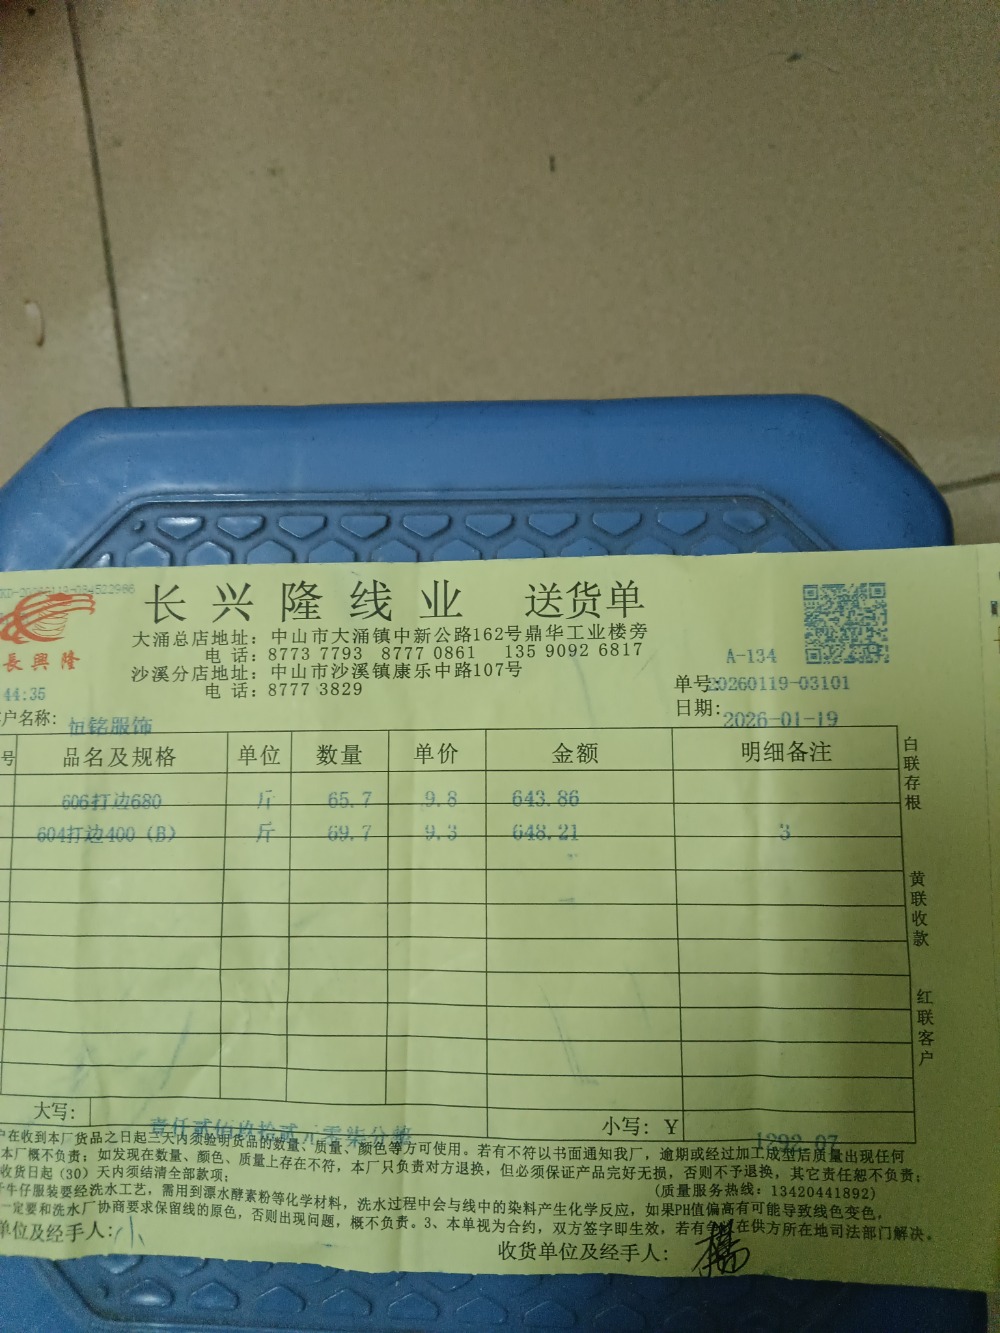 长兴隆线业 送货单
大涌总店地址：中山市大涌镇中新公路162号鼎华工业楼旁
电 话：8773 7793 8777 0861 135 9092 6817
沙溪分店地址：中山市沙溪镇康乐中路107号
电 话：8777 3829
長興隆
44:35
A-134
单号:20260119-03101
日期: 2026-01-19
户名称: 恒铭服饰
号 品名及规格 单位 数量 单价 金额 明细备注
606打边680 斤 65.7 9.8 643.86
604打边400（B） 斤 69.7 9.3 648.21 3
白联存根
黄联收款
红联客户
大写: 壹仟贰佰玖拾贰元零柒分整
小写: Y 1292.07
户在收到本厂货品之日起三天内须验明货品的数量、质量、颜色等方可使用。若有不符以书面通知我厂，逾期或经过加工成型后质量出现任何
本厂概不负责；如发现在数量、颜色、质量上存在不符，本厂只负责对方退换，但必须保证产品完好无损，否则不予退换，其它责任恕不负责；
收货日起（30）天内须结清全部款项； (质量服务热线：13420441892)
牛仔服装要经洗水工艺，需用到漂水酵素粉等化学材料，洗水过程中会与线中的染料产生化学反应，如果PH值偏高有可能导致线色变色，
一定要和洗水厂协商要求保留线的原色，否则出现问题，概不负责。3、本单视为合约，双方签字即生效，若有争 在供方所在地司法部门解决。
单位及经手人: 小
收货单位及经手人: 楊